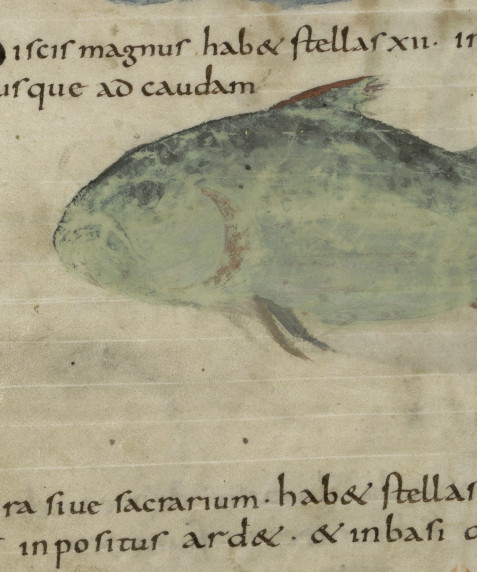 Piscis magnus hab& stellas xii. in
usque ad caudam
ra siue sacrarium. hab& stellas
inpositus ard&. & in basi